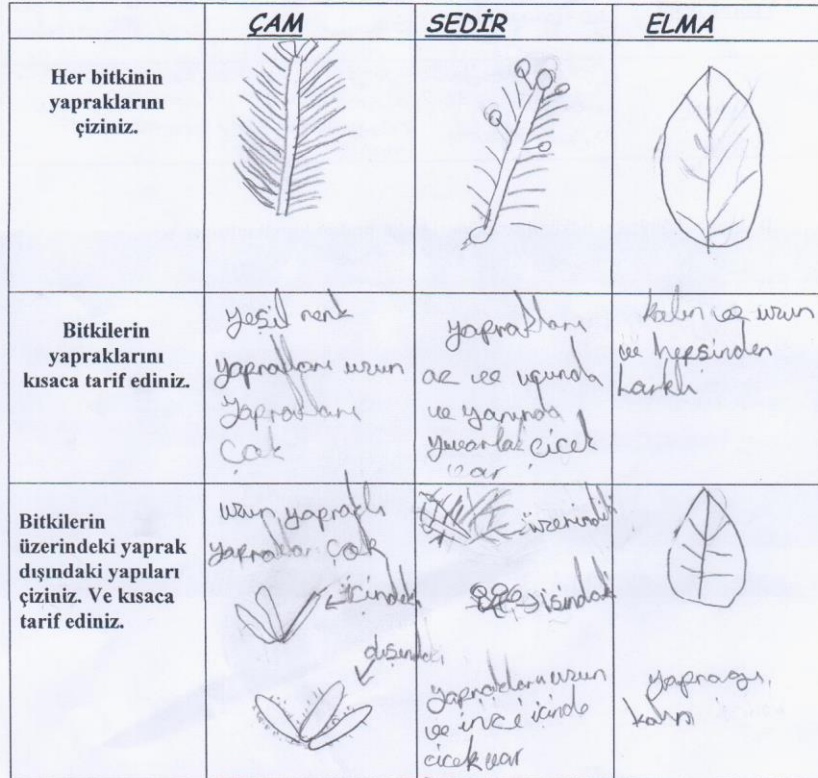 ÇAM
SEDİR
ELMA
Her bitkinin
yapraklarını
çiziniz.
Bitkilerin
yapraklarını
kısaca tarif ediniz.
yeşil renk
yaprakları uzun
yaprakları
çok
yaprakları
az ve ucunda
ve yanında
yuvarlak çiçek
var
kalın ve uzun
ve hepsinden
farklı
Bitkilerin
üzerindeki yaprak
dışındaki yapıları
çiziniz. Ve kısaca
tarif ediniz.
uzun yapraklı
yaprakları çok
içindeki
dışındaki
üzerindeki
yaprakları uzun
ve ince içinde
çicek var
yaprağı
kalın